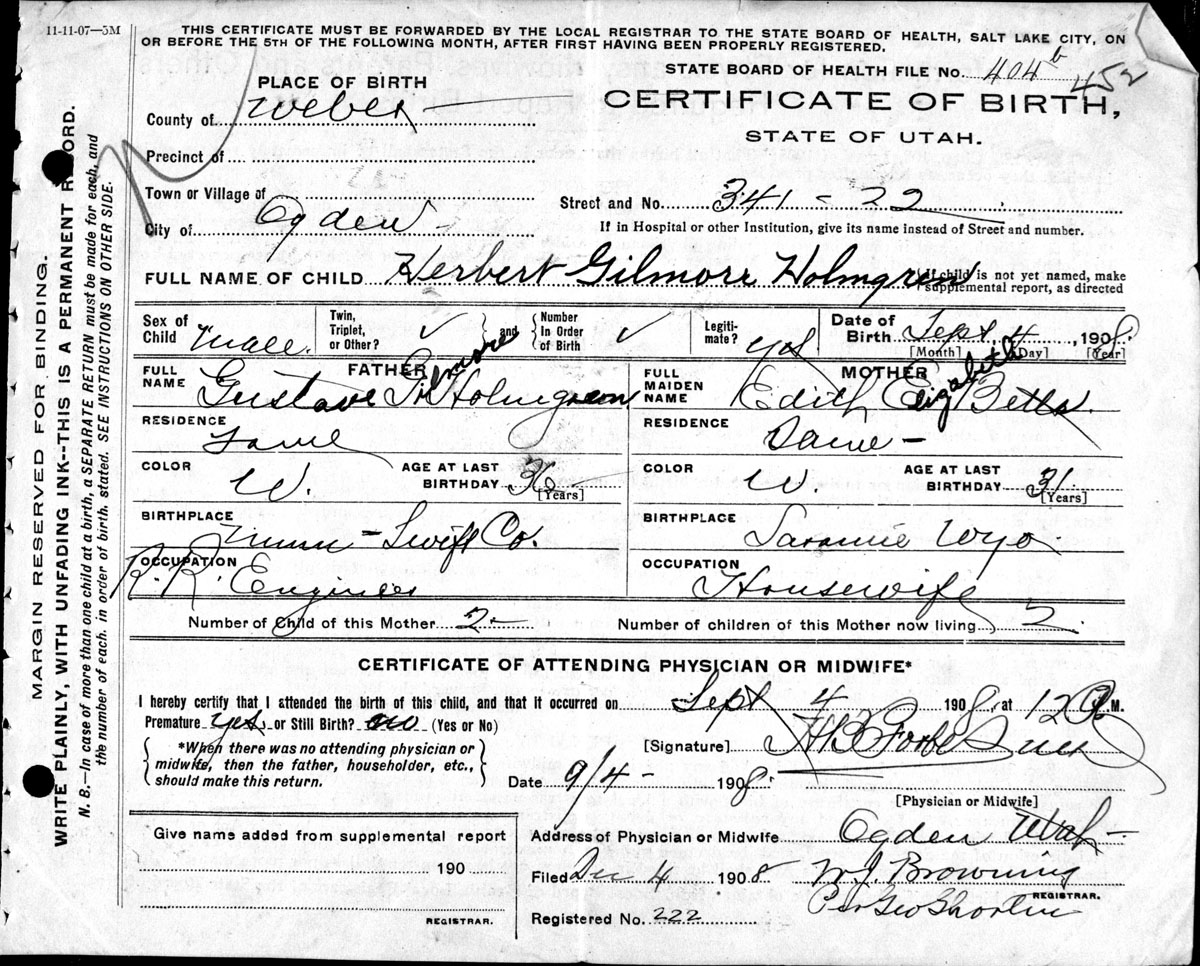 11-11-07—5M
THIS CERTIFICATE MUST BE FORWARDED BY THE LOCAL REGISTRAR TO THE STATE BOARD OF HEALTH, SALT LAKE CITY, ON
OR BEFORE THE 5TH OF THE FOLLOWING MONTH, AFTER FIRST HAVING BEEN PROPERLY REGISTERED.
STATE BOARD OF HEALTH FILE No. 404 b 452
PLACE OF BIRTH
CERTIFICATE OF BIRTH,
STATE OF UTAH.
County of Weber
Precinct of
Town or Village of
Street and No. 341 - 22
City of Ogden
If in Hospital or other Institution, give its name instead of Street and number.
FULL NAME OF CHILD Herbert Gilmore Holmgren If child is not yet named, make
supplemental report, as directed
Sex of Child Male. Twin, Triplet, or Other? ✓ and Number In Order of Birth ✓ Legiti- mate? yes Date of Birth Sept 4, 1908
[Month] [Day] [Year]
FATHER MOTHER
FULL NAME Gustave Gilmore Holmgreen FULL MAIDEN NAME Edith Elizabeth Betts
RESIDENCE Same RESIDENCE Same -
COLOR W. AGE AT LAST BIRTHDAY 36 [Years] COLOR W. AGE AT LAST BIRTHDAY 31 [Years]
BIRTHPLACE Minn - Swift Co. BIRTHPLACE Laramie Wyo
OCCUPATION R.R. Engineer OCCUPATION Housewife
Number of Child of this Mother 2 - Number of children of this Mother now living 2
CERTIFICATE OF ATTENDING PHYSICIAN OR MIDWIFE*
I hereby certify that I attended the birth of this child, and that it occurred on Sept 4 1908, at 12 M.
Premature yes or Still Birth? no (Yes or No)
*When there was no attending physician or
midwife, then the father, householder, etc.,
should make this return.
[Signature] H B Forbes
Date 9/4 - 1908.
[Physician or Midwife]
Give name added from supplemental report
190
REGISTRAR.
Address of Physician or Midwife Ogden Utah -
Filed Dec 4 1908 W.J. Browning
REGISTRAR.
Per Geo Shorten
Registered No. 222
MARGIN RESERVED FOR BINDING.
WRITE PLAINLY, WITH UNFADING INK--THIS IS A PERMANENT R ORD.
N. B.—In case of more than one child at a birth, a SEPARATE RETURN must be made for each, and
the number of each, in order of birth, stated. SEE INSTRUCTIONS ON OTHER SIDE.